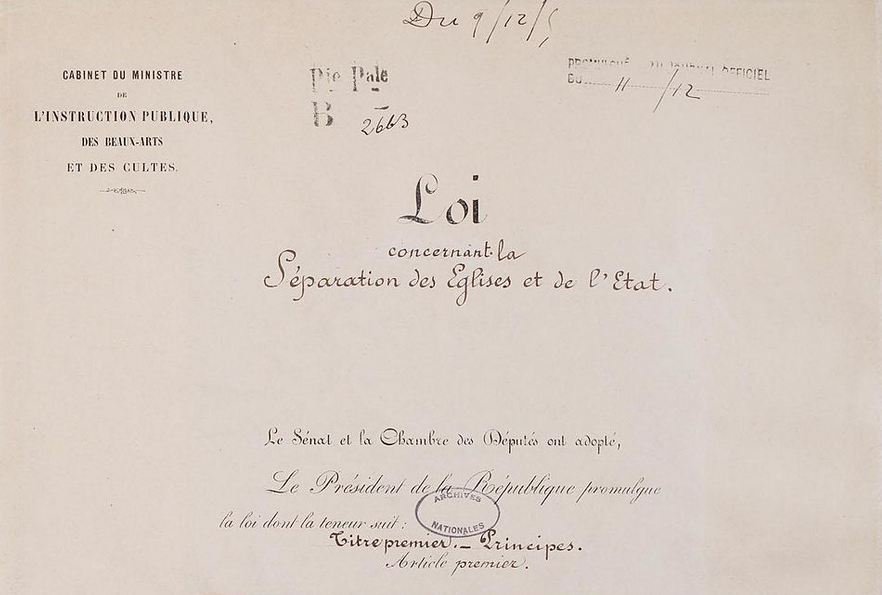 Du 9/12/5
CABINET DU MINISTRE
DE
L'INSTRUCTION PUBLIQUE,
DES BEAUX-ARTS
ET DES CULTES.
Pie Pale
B 2663
PROMULGUÉ AU JOURNAL OFFICIEL
DU 11/12
Loi
concernant la
Séparation des Eglises et de l'Etat.
Le Sénat et la Chambre des Députés ont adopté,
Le Président de la République promulgue
la loi dont la teneur suit :
ARCHIVES
NATIONALES
Titre premier. – Principes.
Article premier.